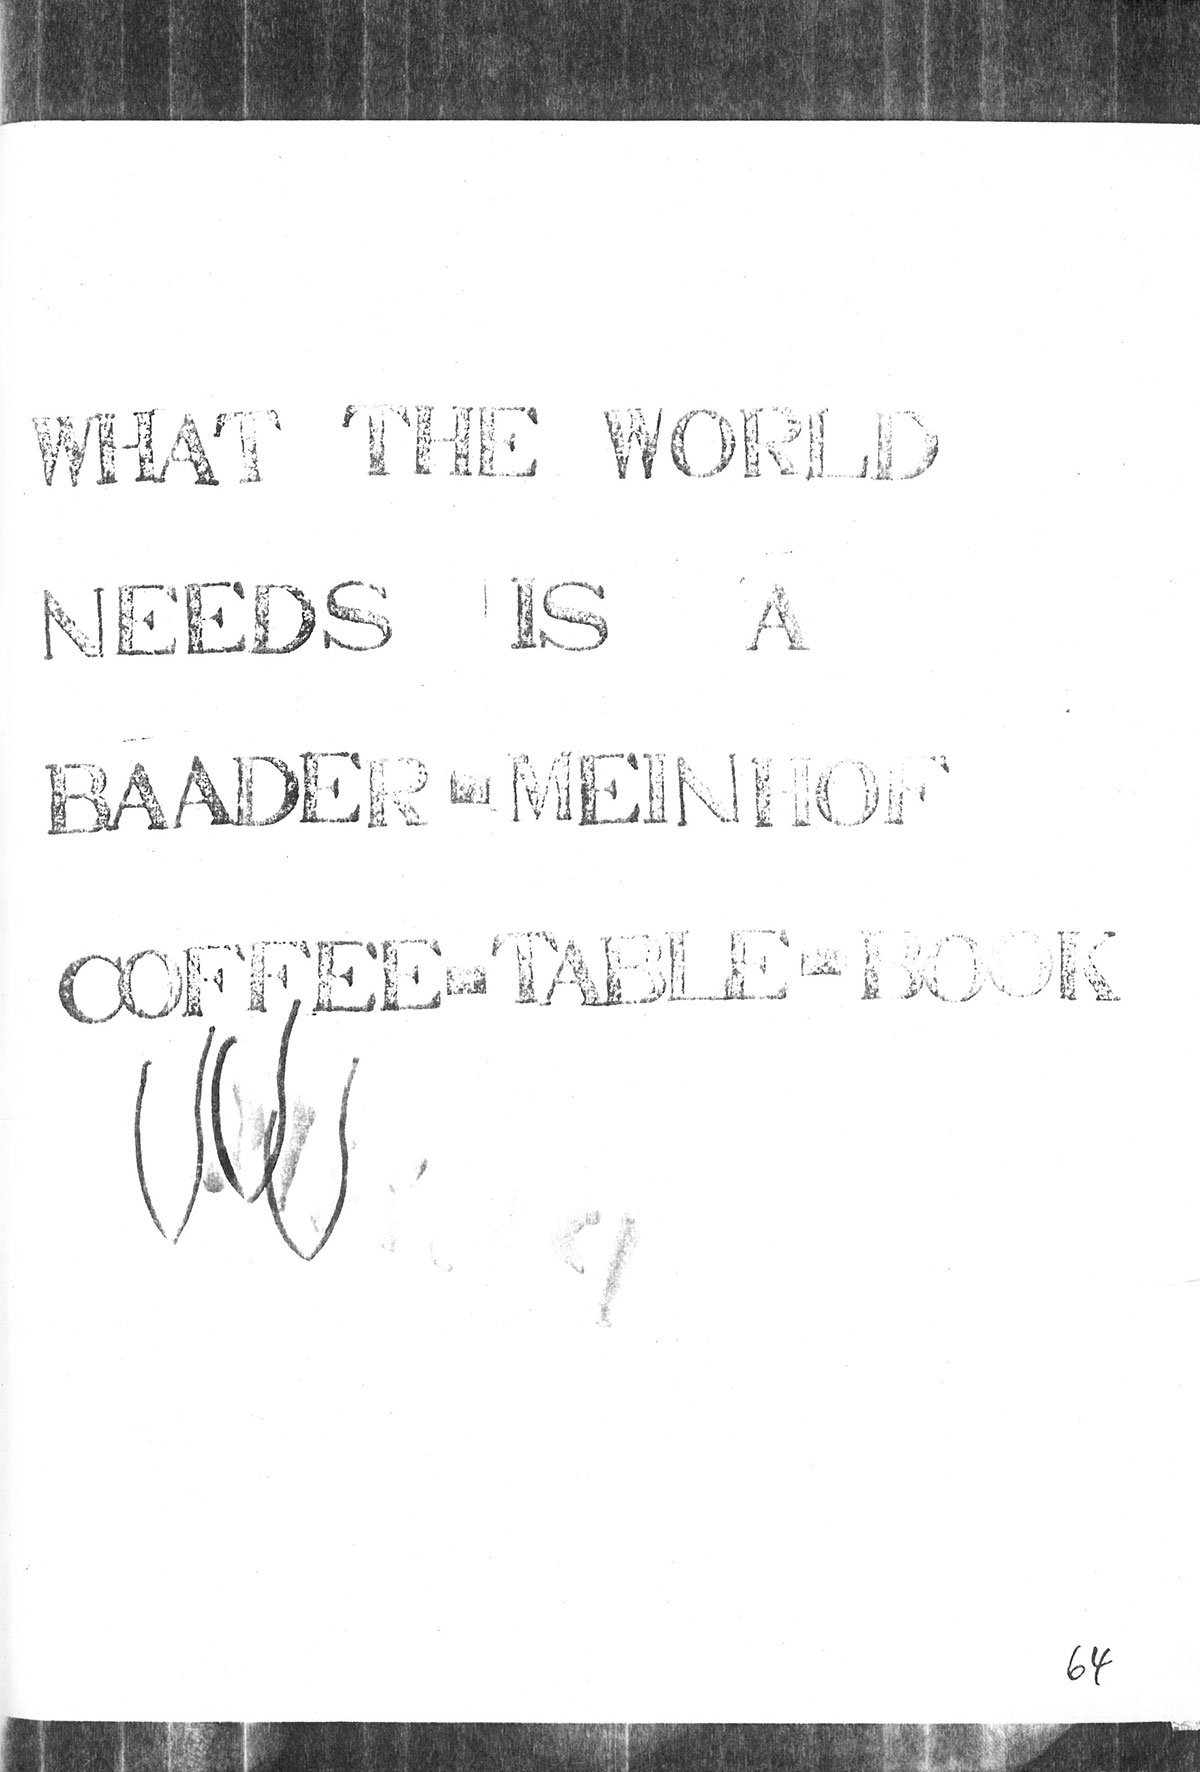 WHAT THE WORLD
NEEDS IS A
BAADER-MEINHOF
COFFEE-TABLE-BOOK
64